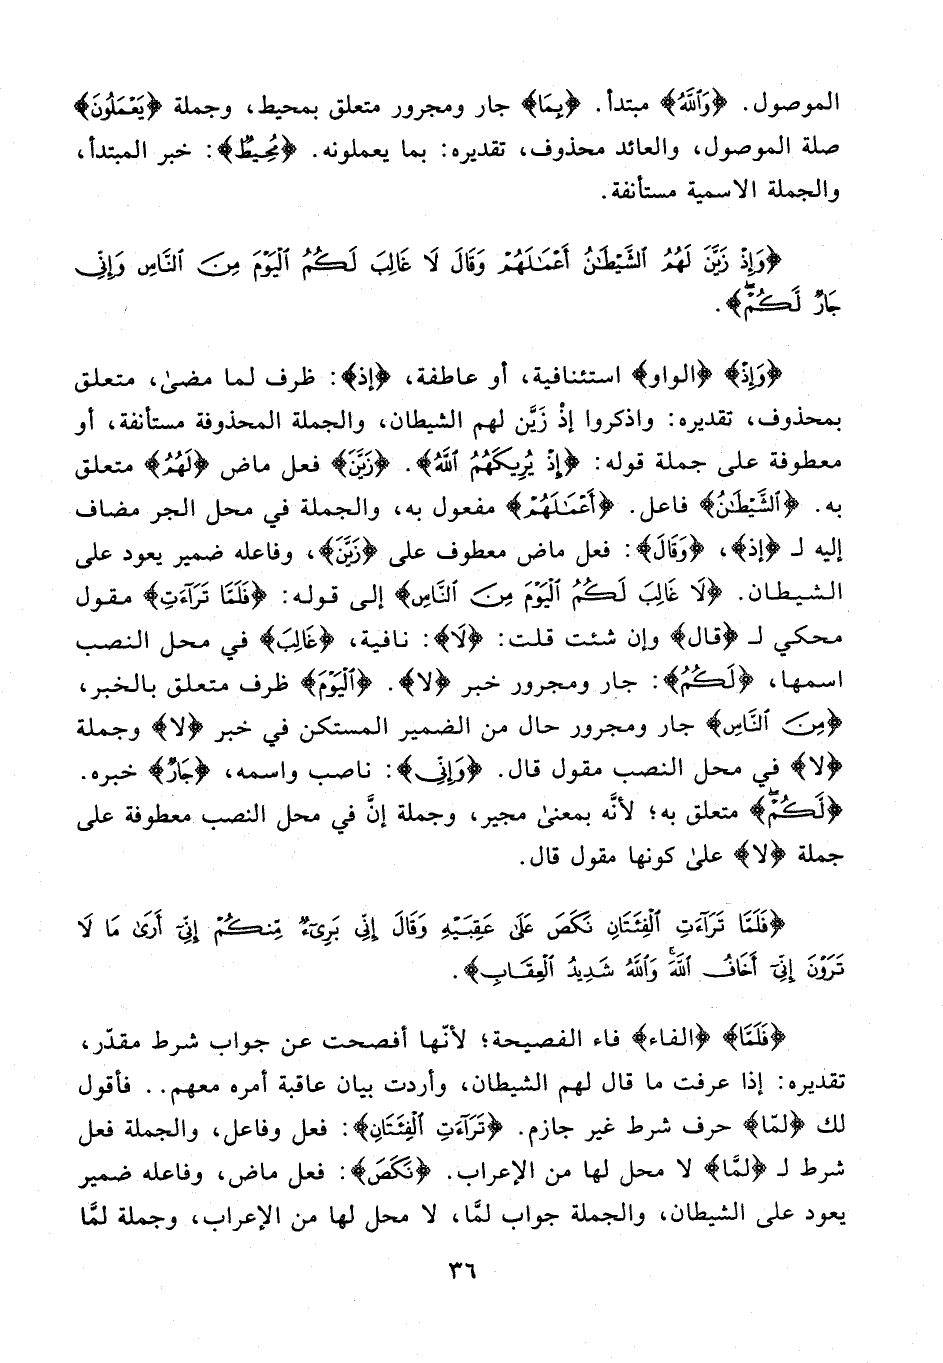 الموصول. ﴿وَاللَّهُ﴾ مبتدأ. ﴿بِمَا﴾ جار ومجرور متعلق بمحيط، وجملة ﴿يَعْمَلُونَ﴾
صلة الموصول، والعائد محذوف، تقديره: بما يعملونه. ﴿مُحِيطٌ﴾: خبر المبتدأ،
والجملة الاسمية مستأنفة.
﴿وَإِذْ زَيَّنَ لَهُمُ الشَّيْطَٰنُ أَعْمَٰلَهُمْ وَقَالَ لَا غَالِبَ لَكُمُ الْيَوْمَ مِنَ النَّاسِ وَإِنِّي
جَارٌ لَّكُمْ﴾.
﴿وَإِذْ﴾ ﴿الواو﴾ استئنافية، أو عاطفة، ﴿إذ﴾: ظرف لما مضىٰ، متعلق
بمحذوف، تقديره: واذكروا إذْ زَيَّن لهم الشيطان، والجملة المحذوفة مستأنفة، أو
معطوفة على جملة قوله: ﴿إِذْ يُرِيكَهُمُ اللَّهُ﴾. ﴿زَيَّنَ﴾ فعل ماض ﴿لَهُمُ﴾ متعلق
به. ﴿الشَّيْطَٰنُ﴾ فاعل. ﴿أَعْمَٰلَهُمْ﴾ مفعول به، والجملة في محل الجر مضاف
إليه لـ ﴿إذ﴾، ﴿وَقَالَ﴾: فعل ماض معطوف على ﴿زَيَّنَ﴾، وفاعله ضمير يعود على
الشيطان. ﴿لَا غَالِبَ لَكُمُ الْيَوْمَ مِنَ النَّاسِ﴾ إلى قوله: ﴿فَلَمَّا تَرَآءَتِ﴾ مقول
محكي لـ ﴿قال﴾ وإن شئت قلت: ﴿لَا﴾: نافية، ﴿غَالِبَ﴾ في محل النصب
اسمها، ﴿لَكُمُ﴾: جار ومجرور خبر ﴿لا﴾. ﴿الْيَوْمَ﴾ ظرف متعلق بالخبر،
﴿مِنَ النَّاسِ﴾ جار ومجرور حال من الضمير المستكن في خبر ﴿لا﴾ وجملة
﴿لا﴾ في محل النصب مقول قال. ﴿وَإِنِّي﴾: ناصب واسمه، ﴿جَارٌ﴾ خبره.
﴿لَكُمْ﴾ متعلق به؛ لأنَّه بمعنىٰ مجير، وجملة إنَّ في محل النصب معطوفة على
جملة ﴿لا﴾ علىٰ كونها مقول قال.
﴿فَلَمَّا تَرَآءَتِ الْفِئَتَانِ نَكَصَ عَلَىٰ عَقِبَيْهِ وَقَالَ إِنِّي بَرِيٓءٌ مِّنكُمْ إِنِّيٓ أَرَىٰ مَا لَا
تَرَوْنَ إِنِّيٓ أَخَافُ اللَّهَ وَاللَّهُ شَدِيدُ الْعِقَابِ﴾.
﴿فَلَمَّا﴾ ﴿الفاء﴾ فاء الفصيحة؛ لأنّها أفصحت عن جواب شرط مقدّر،
تقديره: إذا عرفت ما قال لهم الشيطان، وأردت بيان عاقبة أمره معهم.. فأقول
لك ﴿لمّا﴾ حرف شرط غير جازم. ﴿تَرَآءَتِ الْفِئَتَانِ﴾: فعل وفاعل، والجملة فعل
شرط لـ ﴿لمَّا﴾ لا محل لها من الإعراب. ﴿نَكَصَ﴾: فعل ماض، وفاعله ضمير
يعود على الشيطان، والجملة جواب لمَّا، لا محل لها من الإعراب، وجملة لمَّا
٣٦